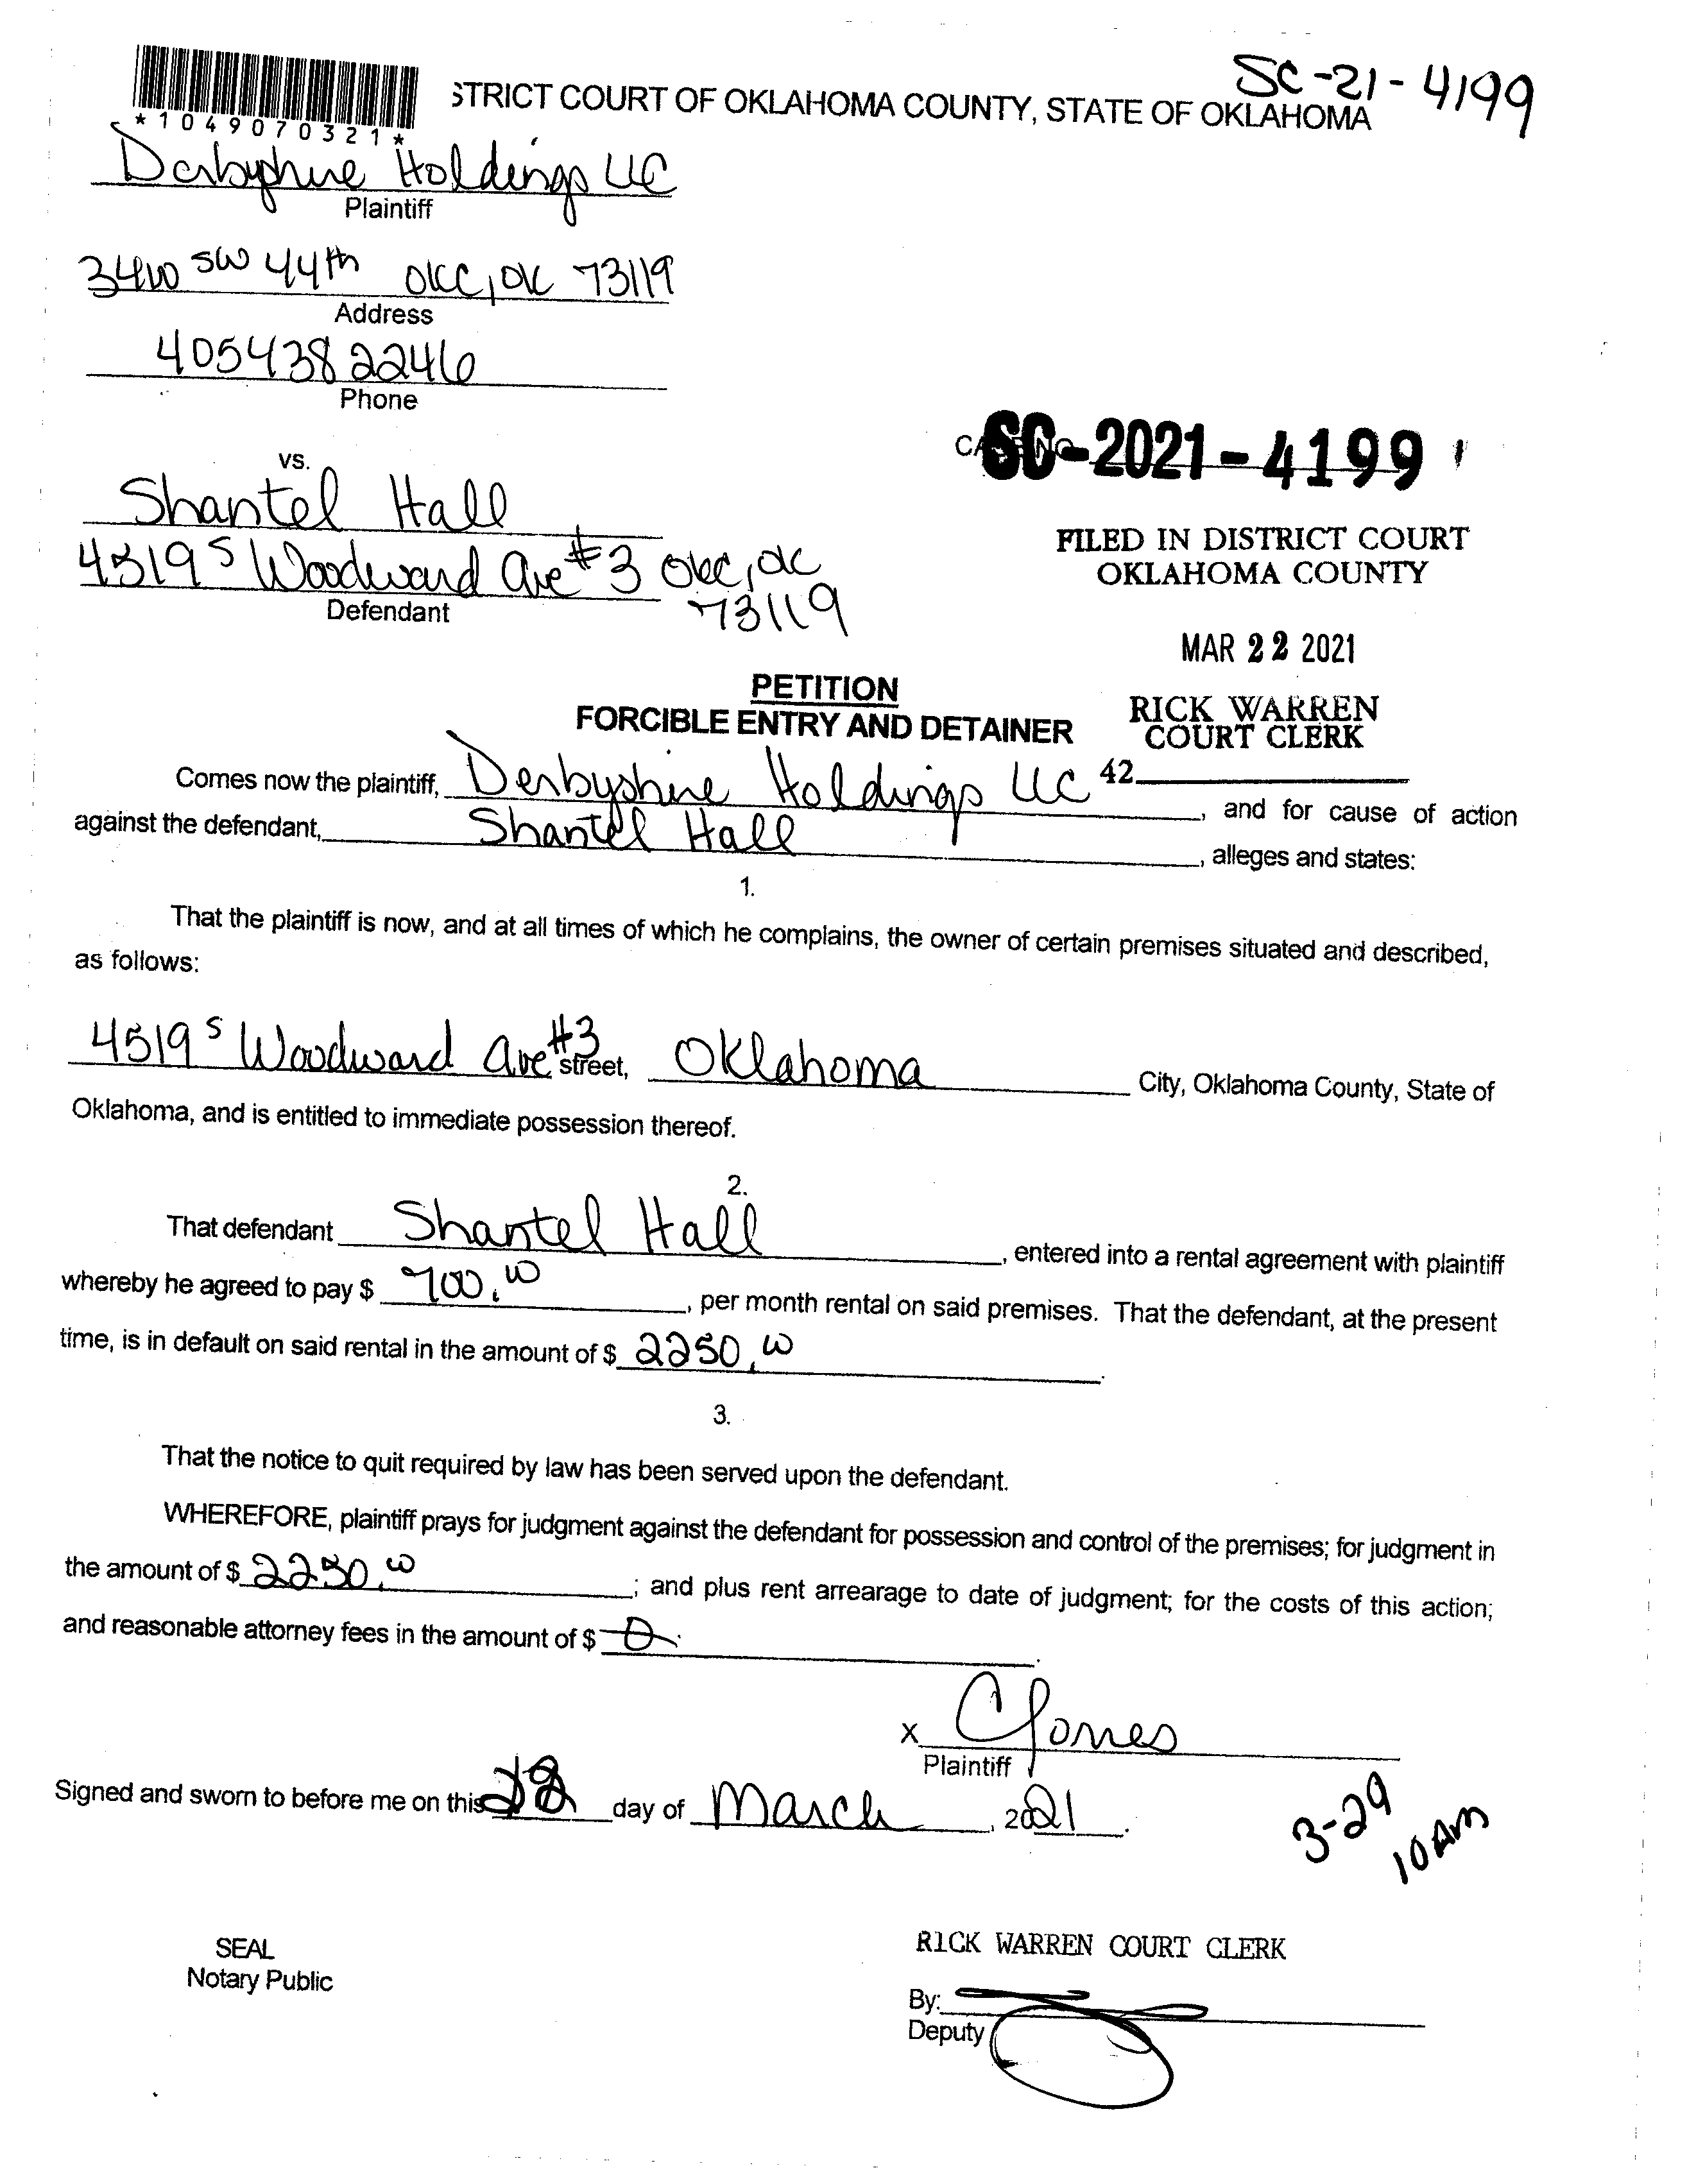 SC-21-4199
STRICT COURT OF OKLAHOMA COUNTY, STATE OF OKLAHOMA
*1049070321*
Derbyshire Holdings LLC
Plaintiff
SW 44th OKC, OK 73119
Address
4054382246
Phone
vs.
SC-2021-4199
Shantel Hall
4519 S Woodward Ave #3 OKC, OK
73119
Defendant
FILED IN DISTRICT COURT
OKLAHOMA COUNTY
MAR 22 2021
RICK WARREN
COURT CLERK
42
PETITION
FORCIBLE ENTRY AND DETAINER
Comes now the plaintiff, Derbyshire Holdings LLC, and for cause of action
against the defendant, Shantel Hall, alleges and states:
1.
That the plaintiff is now, and at all times of which he complains, the owner of certain premises situated and described,
as follows:
4519 S Woodward Ave #3 street, Oklahoma City, Oklahoma County, State of
Oklahoma, and is entitled to immediate possession thereof.
2.
That defendant Shantel Hall, entered into a rental agreement with plaintiff
whereby he agreed to pay $ 700.00, per month rental on said premises. That the defendant, at the present
time, is in default on said rental in the amount of $ 2250.00.
3.
That the notice to quit required by law has been served upon the defendant.
WHEREFORE, plaintiff prays for judgment against the defendant for possession and control of the premises; for judgment in
the amount of $ 2250.00; and plus rent arrearage to date of judgment; for the costs of this action;
and reasonable attorney fees in the amount of $ 0.
x CJones
Plaintiff
Signed and sworn to before me on this day of March, 2021.
3-29
10 AM
SEAL
Notary Public
RICK WARREN COURT CLERK
By:
Deputy